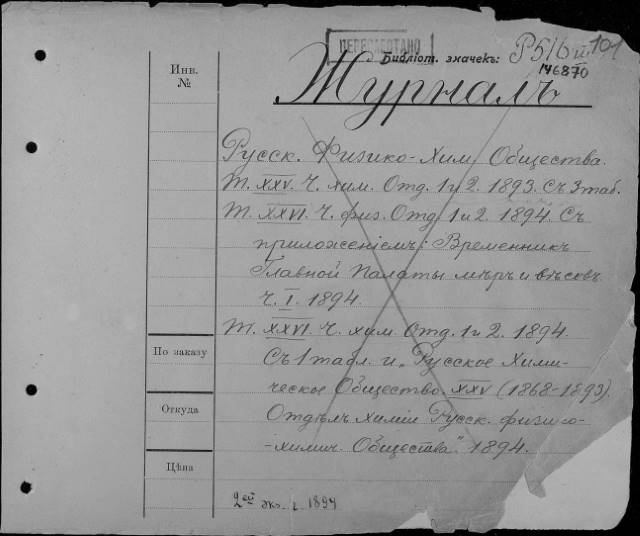 ПЕРЕРАБОТАНО
Библіот. значекъ: Р516 III/VI 101
146870
Журналъ
Инв.
№
Русск. Физико-Хим. Общества.
Т. XXV. Ч. хим. Отд. 1 и 2. 1893. Съ 3 таб.
Т. XXVI. Ч. физ. Отд. 1 и 2. 1894. Съ
приложеніемъ: Временникъ
Главной Палаты мѣръ и вѣсовъ
Ч. I. 1894.
Т. XXVI. Ч. хим. Отд. 1 и 2. 1894.
Съ 1 табл. и „Русское Хими-
ческое Общество. XXV (1868-1893).
Отдѣлъ химіи Русск. физико-
-химич. Общества" 1894.
По заказу
Откуда
Цѣна
2ой экз. г. 1894